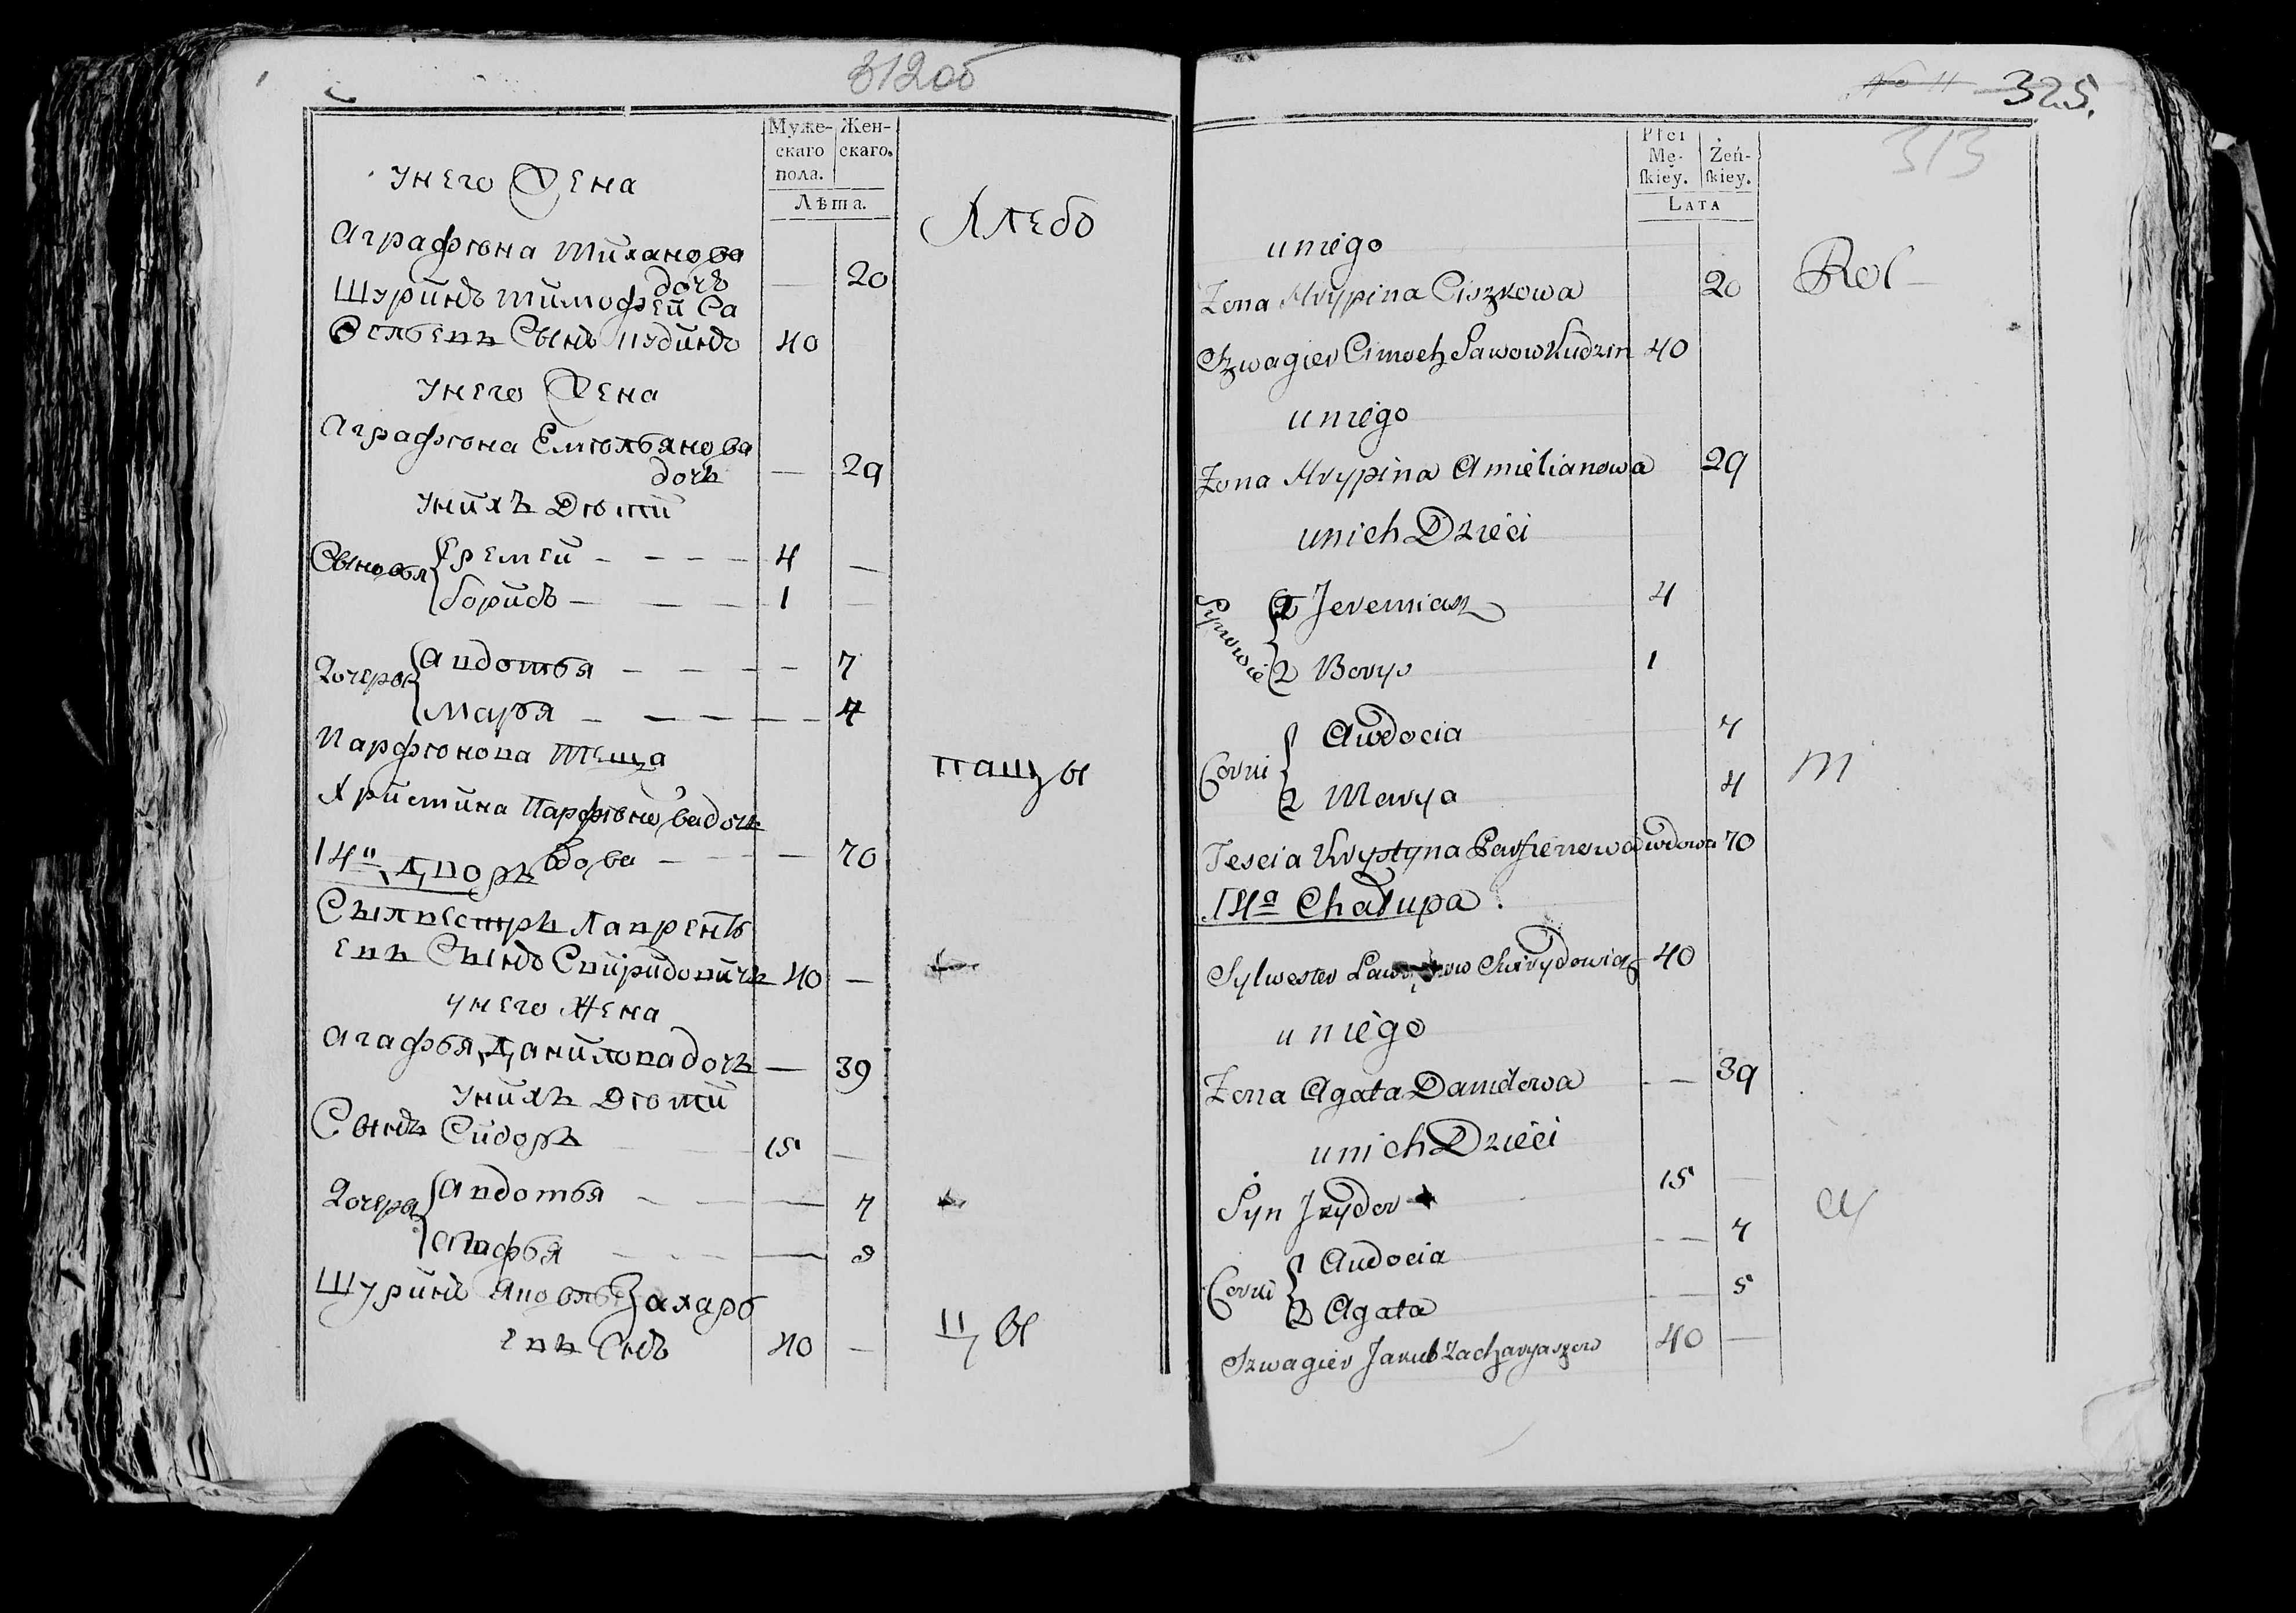 312об
Муже-
скаго
пола.
Жен-
скаго.
Лѣта.
у него Жена
Хлебо
Аграфѣна Тиханова
дочь — 20
Шуринъ Тимофей Са
вельевъ Сынъ Кудинъ 40
у него Жена
Аграфѣна Емѣльянова
дочь — 29
у нихъ Дѣти
Сыновья Еремей 4 —
Борисъ 1 —
Дочеры Авдотья 7
Марья 4
Парфѣнова Теща
пашцы
Христина Парфѣнова дочь
Вдова — 70
14й Дворъ
Сылвестръ Лаврентъ
евъ Сынъ Спиридовичъ 40 —
у него Жена
Агафья Данилова дочь — 39
у нихъ Дѣти
Сынъ Сидоръ 15 —
Дочери Авдотья — 7
Агафья —
Шуринъ Яковъ Захарь
евъ Снъ 40 —
цы
№ 11 325.
313
Płci
Mę-
skiey.
Żeń-
skiey.
Lata
u niego
Żona Hrypina Ciszkowa 20
Rol
Szwagier Cimoch Sawow Kudzin 40
u niego
Żona Hrypina Amielianowa 29
u nich Dzieci
Synowie 1 Jeremiasz 4
2 Borys 1
Corki Awdocia 7
2 Marya 4
Tescia Krystyna Parfienowa wdowa 70
14a Chałupa.
Sylwester Swirydowicz 40
u niego
Żona Agata Daniłowa — 39
u nich Dzieci
Syn Jzydor 15 —
Corki Audocia — 7
2 Agata — 5
Szwagier Jakub Zacharyaszow 40 —